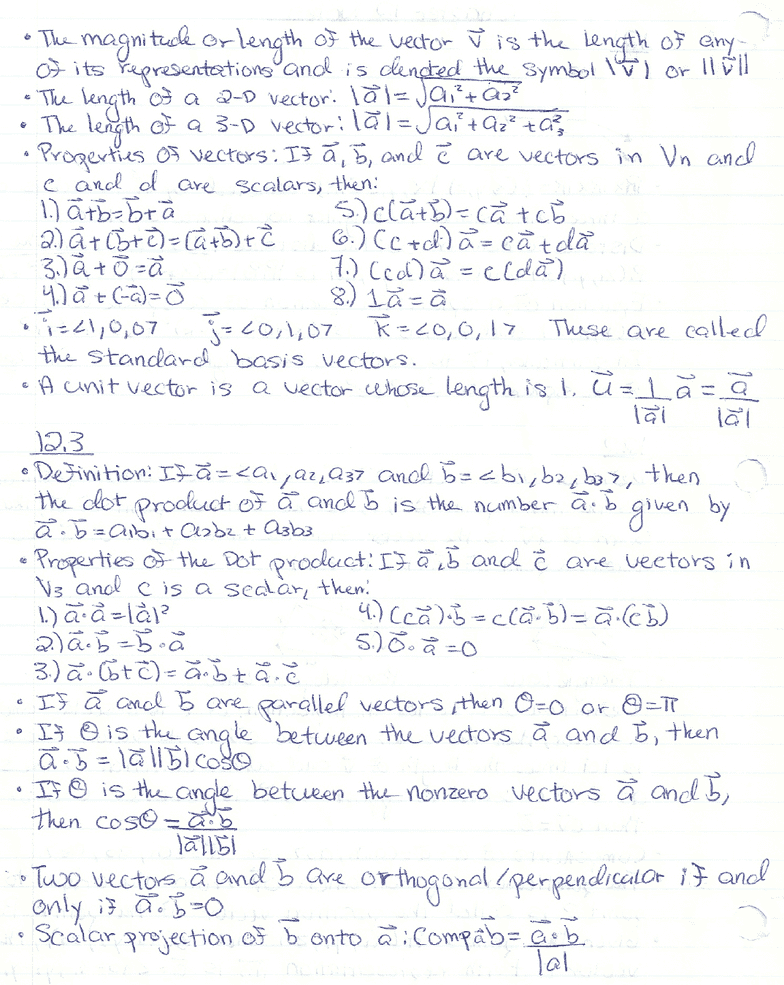 • The magnitude or length of the vector v⃗ is the length of any
of its representations and is denoted the symbol |v⃗| or ||v⃗||
• The length of a 2-D vector: |a⃗| = √(a₁² + a₂²)
• The length of a 3-D vector: |a⃗| = √(a₁² + a₂² + a₃²)
• Properties of vectors: If a⃗, b⃗, and c⃗ are vectors in Vn and
c and d are scalars, then:
1.) a⃗+b⃗=b⃗+a⃗ 5.) c(a⃗+b⃗) = ca⃗ + cb⃗
2.) a⃗+(b⃗+c⃗)=(a⃗+b⃗)+c⃗ 6.) (c+d)a⃗ = ca⃗ + da⃗
3.) a⃗ + 0⃗ = a⃗ 7.) (cd)a⃗ = c(da⃗)
4.) a⃗ + (-a⃗) = 0⃗ 8.) 1a⃗ = a⃗
• i⃗ = <1,0,0> j⃗ = <0,1,0> k⃗ = <0,0,1> These are called
the standard basis vectors.
• A unit vector is a vector whose length is 1. u⃗ = 1/|a⃗| a⃗ = a⃗/|a⃗|
12.3
• Definition: If a⃗ = <a₁, a₂, a₃> and b⃗ = <b₁, b₂, b₃>, then
the dot product of a⃗ and b⃗ is the number a⃗·b⃗ given by
a⃗·b⃗ = a₁b₁ + a₂b₂ + a₃b₃
• Properties of the Dot product: If a⃗, b⃗ and c⃗ are vectors in
V₃ and c is a scalar, then:
1.) a⃗·a⃗ = |a⃗|² 4.) (ca⃗)·b⃗ = c(a⃗·b⃗) = a⃗·(cb⃗)
2.) a⃗·b⃗ = b⃗·a⃗ 5.) 0⃗·a⃗ = 0
3.) a⃗·(b⃗+c⃗) = a⃗·b⃗ + a⃗·c⃗
• If a⃗ and b⃗ are parallel vectors, then θ=0 or θ=π
• If θ is the angle between the vectors a⃗ and b⃗, then
a⃗·b⃗ = |a⃗||b⃗|cosθ
• If θ is the angle between the nonzero vectors a⃗ and b⃗,
then cosθ = a⃗·b⃗/|a⃗||b⃗|
• Two vectors a⃗ and b⃗ are orthogonal/perpendicular if and
only if a⃗·b⃗ = 0
• Scalar projection of b⃗ onto a⃗: Compa⃗b⃗ = a⃗·b⃗/|a|